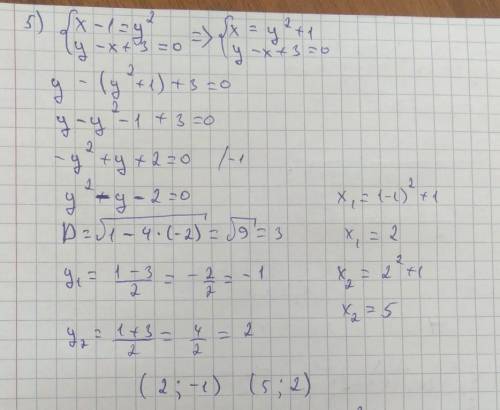 5) { x - 1 = y² => { x = y² + 1
y - x + 3 = 0 y - x + 3 = 0
y - (y² + 1) + 3 = 0
y - y² - 1 + 3 = 0
- y² + y + 2 = 0 /-1
y² - y - 2 = 0
D = √1 - 4 · (-2) = √9 = 3
y₁ = (1 - 3)/2 = - 2/2 = -1
y₂ = (1 + 3)/2 = 4/2 = 2
x₁ = (-1)² + 1
x₁ = 2
x₂ = 2² + 1
x₂ = 5
(2 ; -1) (5 ; 2)